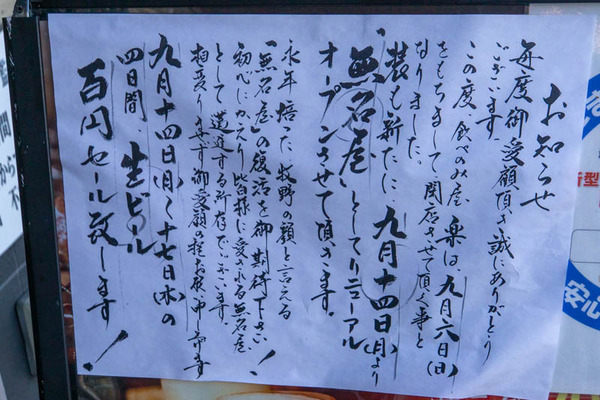 お知らせ
毎度御愛顧頂き誠にありがとう
ございます。
この度、食べのみ屋 楽は、九月六日(日)
をもちまして閉店させて頂く事と
なりました。
装も新たに、九月十四日(月)より
「無名屋」としてリニューアル
オープンさせて頂きます。
永年培った、牧野の顔と言える
「無名屋」の復活を御期待下さい!
初心にかえり皆様に愛される無名屋
として邁進する所存でございます。
相変り ます御愛顧の程お願い申し上げます
九月十四日(月)〜十七日(木)の
四日間、生ビール
百円セール致します!
新型
安心